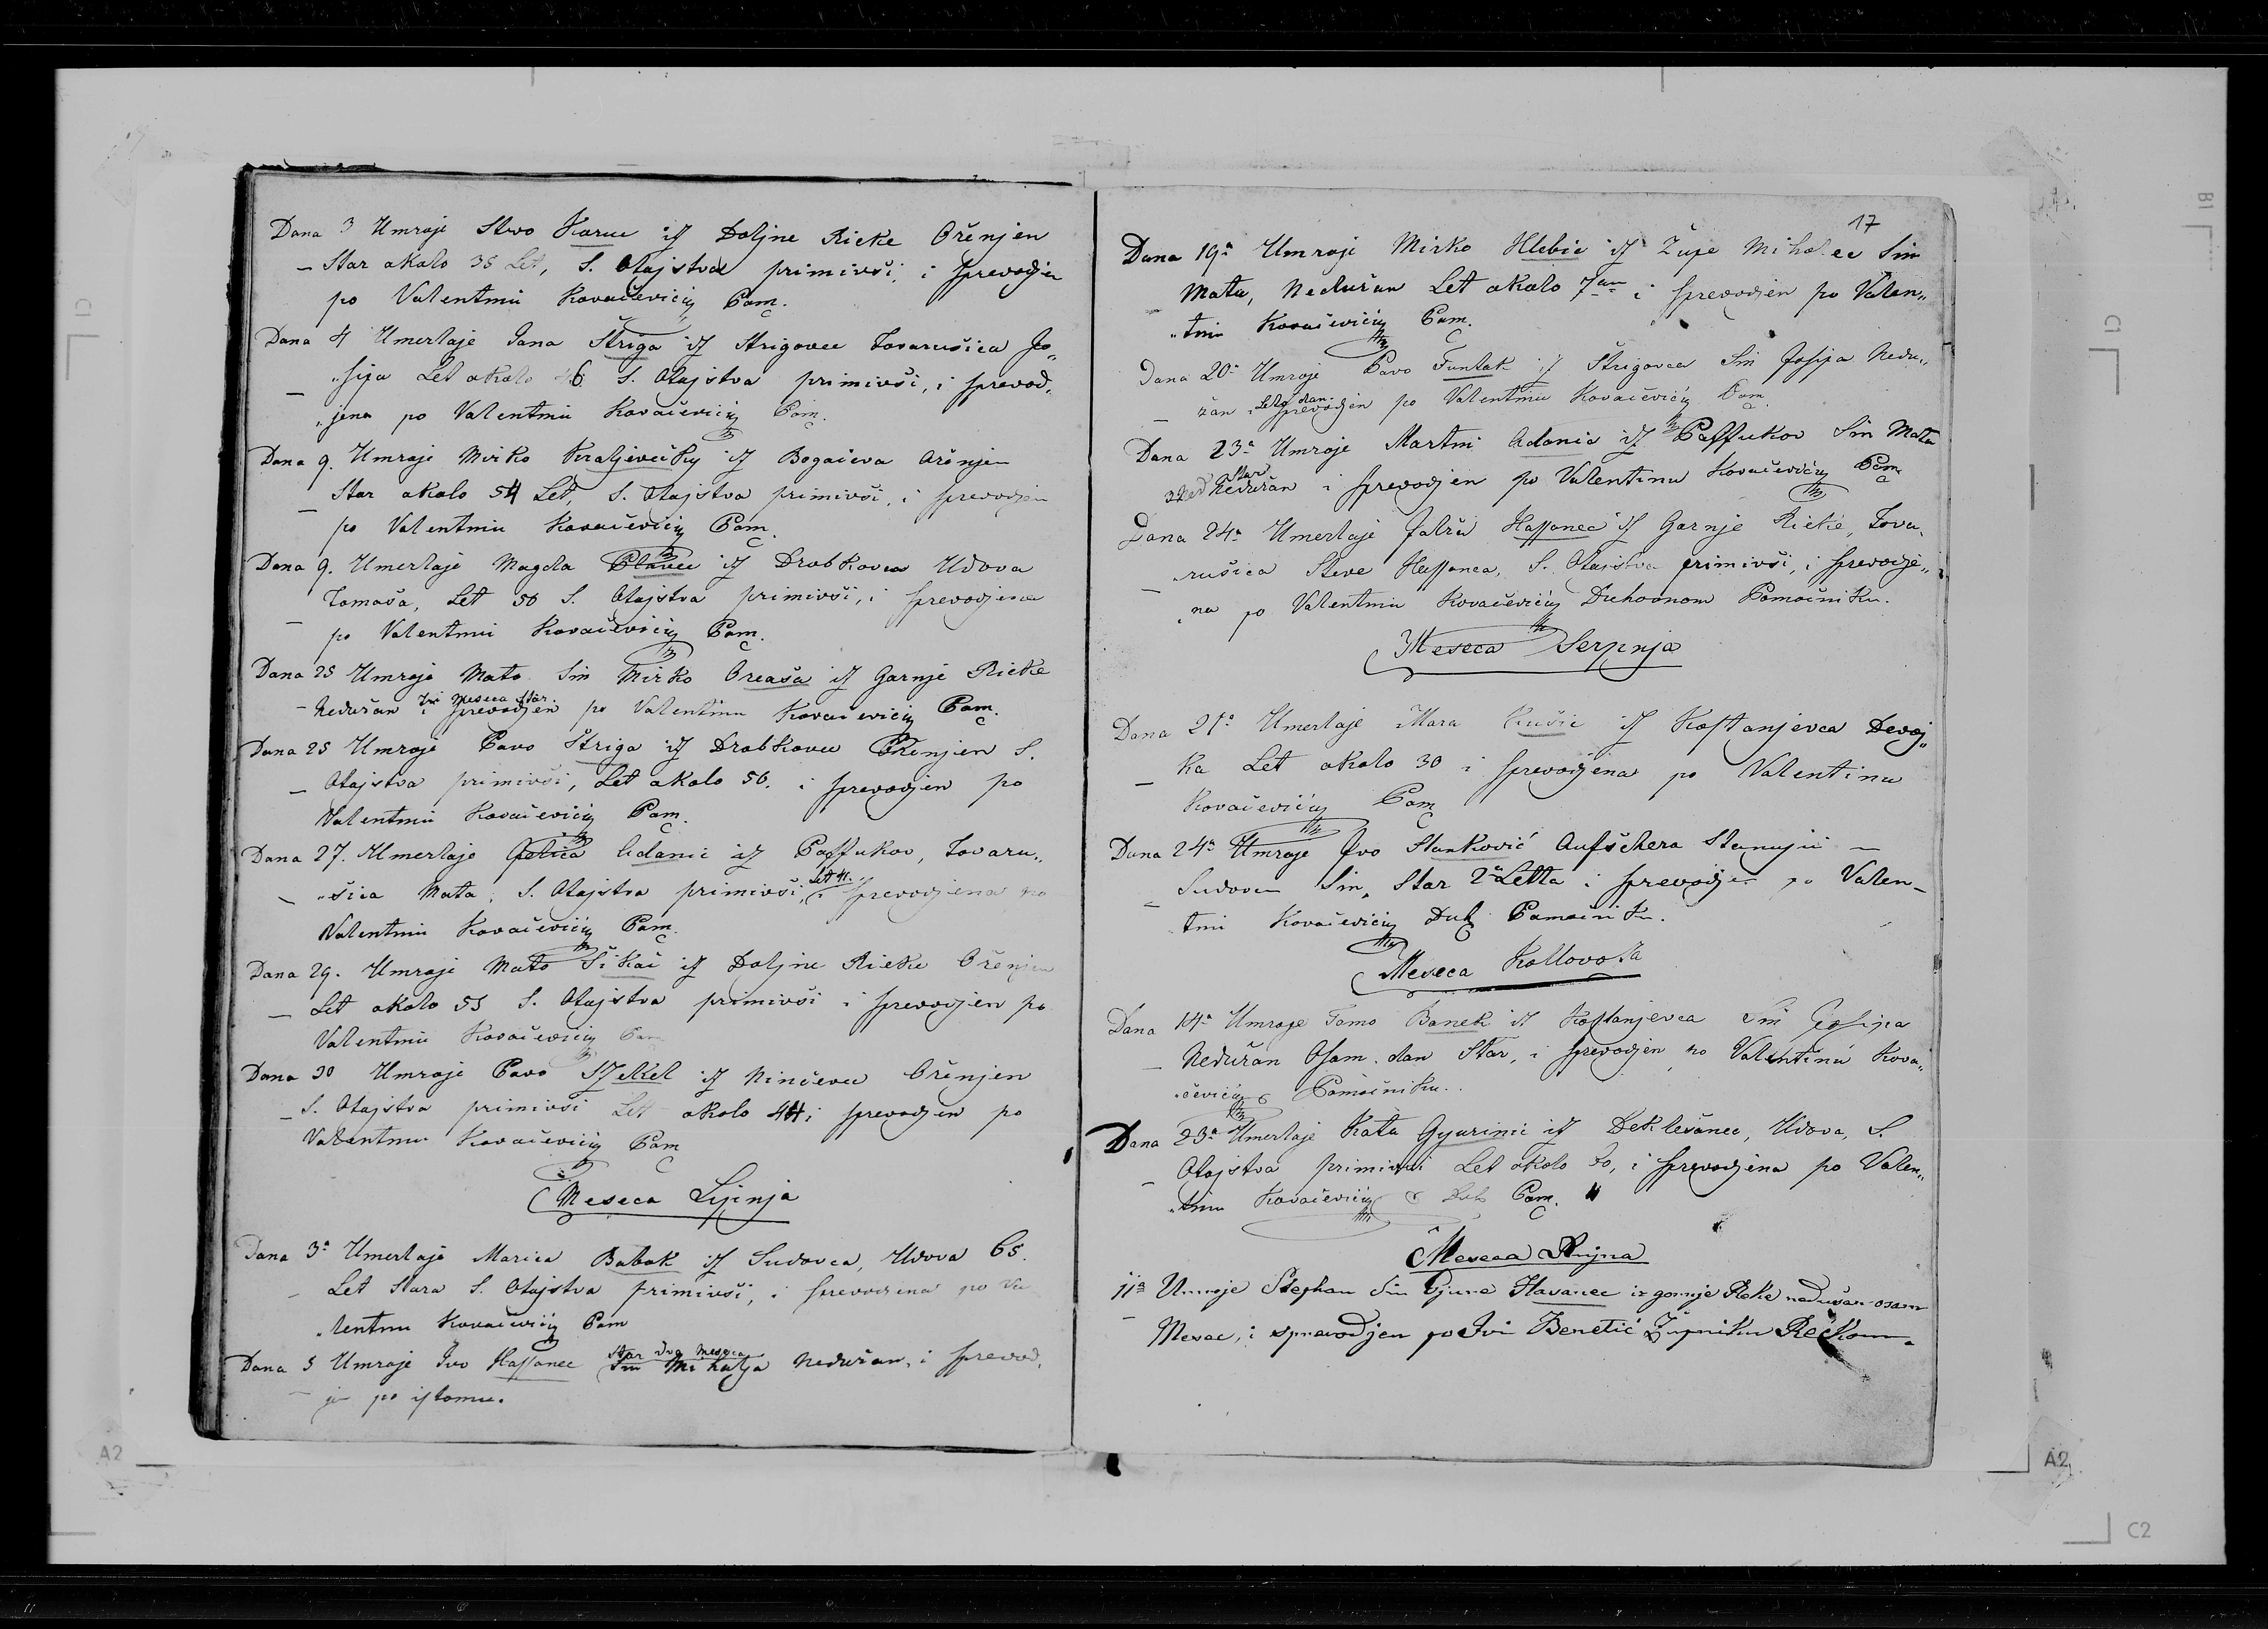 Dana 3 Umroje Stevo Karue iz Doljne Rieke Oženjen
– Star okolo 35 Let, S. Otajstva primivši, i sprevodjen
po Valentinu Kovačeviću Pom.
Dana 4 Umerlaje Jana Štriga iz Strigovec Tovarušica Jo„
– „sipa Let okolo 46 S. Otajstva primivši, i sprevod„
„jena po Valentinu Kovačeviću Pom.
Dana 9. Umroje Mirko Kraljevečky iz Bogačeva Oženjen
– Star okolo 54 Let, S. Otajstva primivši, i sprevodjen
po Valentinu Kovačeviću Pom.
Dana 9. Umerlaje Magda Plavec iz Drobkovca Udova
– Tomaša, Let 50 S. Otajstva primivši, i sprevodjena
po Valentinu Kovačeviću Pom.
Dana 25 Umroje Mato Sin Mirko Oreaša iz Gornje Rieke
tri Meseca star
– Nedužan i sprevodjen po Valentinu Kovačeviću Pom.
Dana 25 Umroje Pavo Štriga iz Drobkovec Oženjen S.
– Otajstva primivši, Let okolo 50. i sprevodjen po
Valentinu Kovačeviću Pom.
Dana 27. Umerlaje Adanić iz Passukov, Tovaru„
Let 41.
– „šica Mata, S. Otajstva primivši, i sprevodjena po
Valentinu Kovačeviću Pom.
Dana 29. Umroje Mato Šikač iz Doljne Rieke Oženjen
– Let okolo 55 S. Otajstva primivši i sprevodjen po
Valentinu Kovačeviću Pom
Dana 30 Umroje Pavo Szekel iz Ninčevec Oženjen
– S. Otajstva primivši Let okolo 44 i sprevodjen po
Valentinu Kovačeviću Pom
Meseca Lipnja
Dana 3a Umerlaje Marica Babok iz Sudovca, Udova 65.
– Let Stara S. Otajstva primivši, i sprevodjena po Va
„lentinu Kovačeviću Pom
star dva Meseca
Dana 5 Umroje Ivo Hassanec Sin Mihalja Nedužan, i sprevod„
– jen po istomu.
17
Dana 19a Umroje Mirko Hlebic iz Župe Miholec Sin
Mata, Nedužan Let okolo 7am i sprevodjen po Valen„
„tinu Kovačeviću Pom.
Dana 20a Umroje Pavo Funtak iz Štrigovca Sin Josipa Nedu„
Leto dan
– žan i sprevodjen po Valentinu Kovačeviću Pom.
Dana 23a Umroje Martin Adanic iz Passukov Sin Mata
star
Nedužan i sprevodjen po Valentinu Kovačeviću Pom
Dana 24a Umerlaje Jalža Hassanec iz Gornje Rieke, Tova„
– „rušica Steve Hassanca, S. Otajstva primivši, i sprevodje„
„na po Valentinu Kovačeviću Duhovnom Pomoćniku.
Meseca Serpnja
Dana 21a Umerlaje Mara Kušic iz Kostanjevca Devoj„
– ka Let okolo 30 i sprevodjena po Valentinu
Kovačeviću Pom
Dana 24a Umroje Ivo Stanković Aufschera Stanujić –
– Sudovcu Sin, Star 2a Letta i sprevodjen po Valen–
tinu Kovačeviću Duh Pomoćniku.
Meseca Kollovoza
Dana 14a Umroje Tomo Banek iz Kostanjevca Sin Josipa
– Nedužan Osam dan Star, i sprevodjen po Valentinu Kova„
„čeviću Pomoćniku.
Dana 23a Umerlaje Kata Gyurinic iz Deklešanec, Udova, S.
– Otajstva primivši Let okolo 50, i sprevodjena po Valen„
„tinu Kovačeviću Duh Pom.
Meseca Rujna
11a Umroje Stephan Sin Gjure Havanec iz gornje Reke nedužan osam
– Mesec, i sprevodjen po Ivi Benetić Župniku Rečkom.
C1
A2
B1
C1
A2
C2